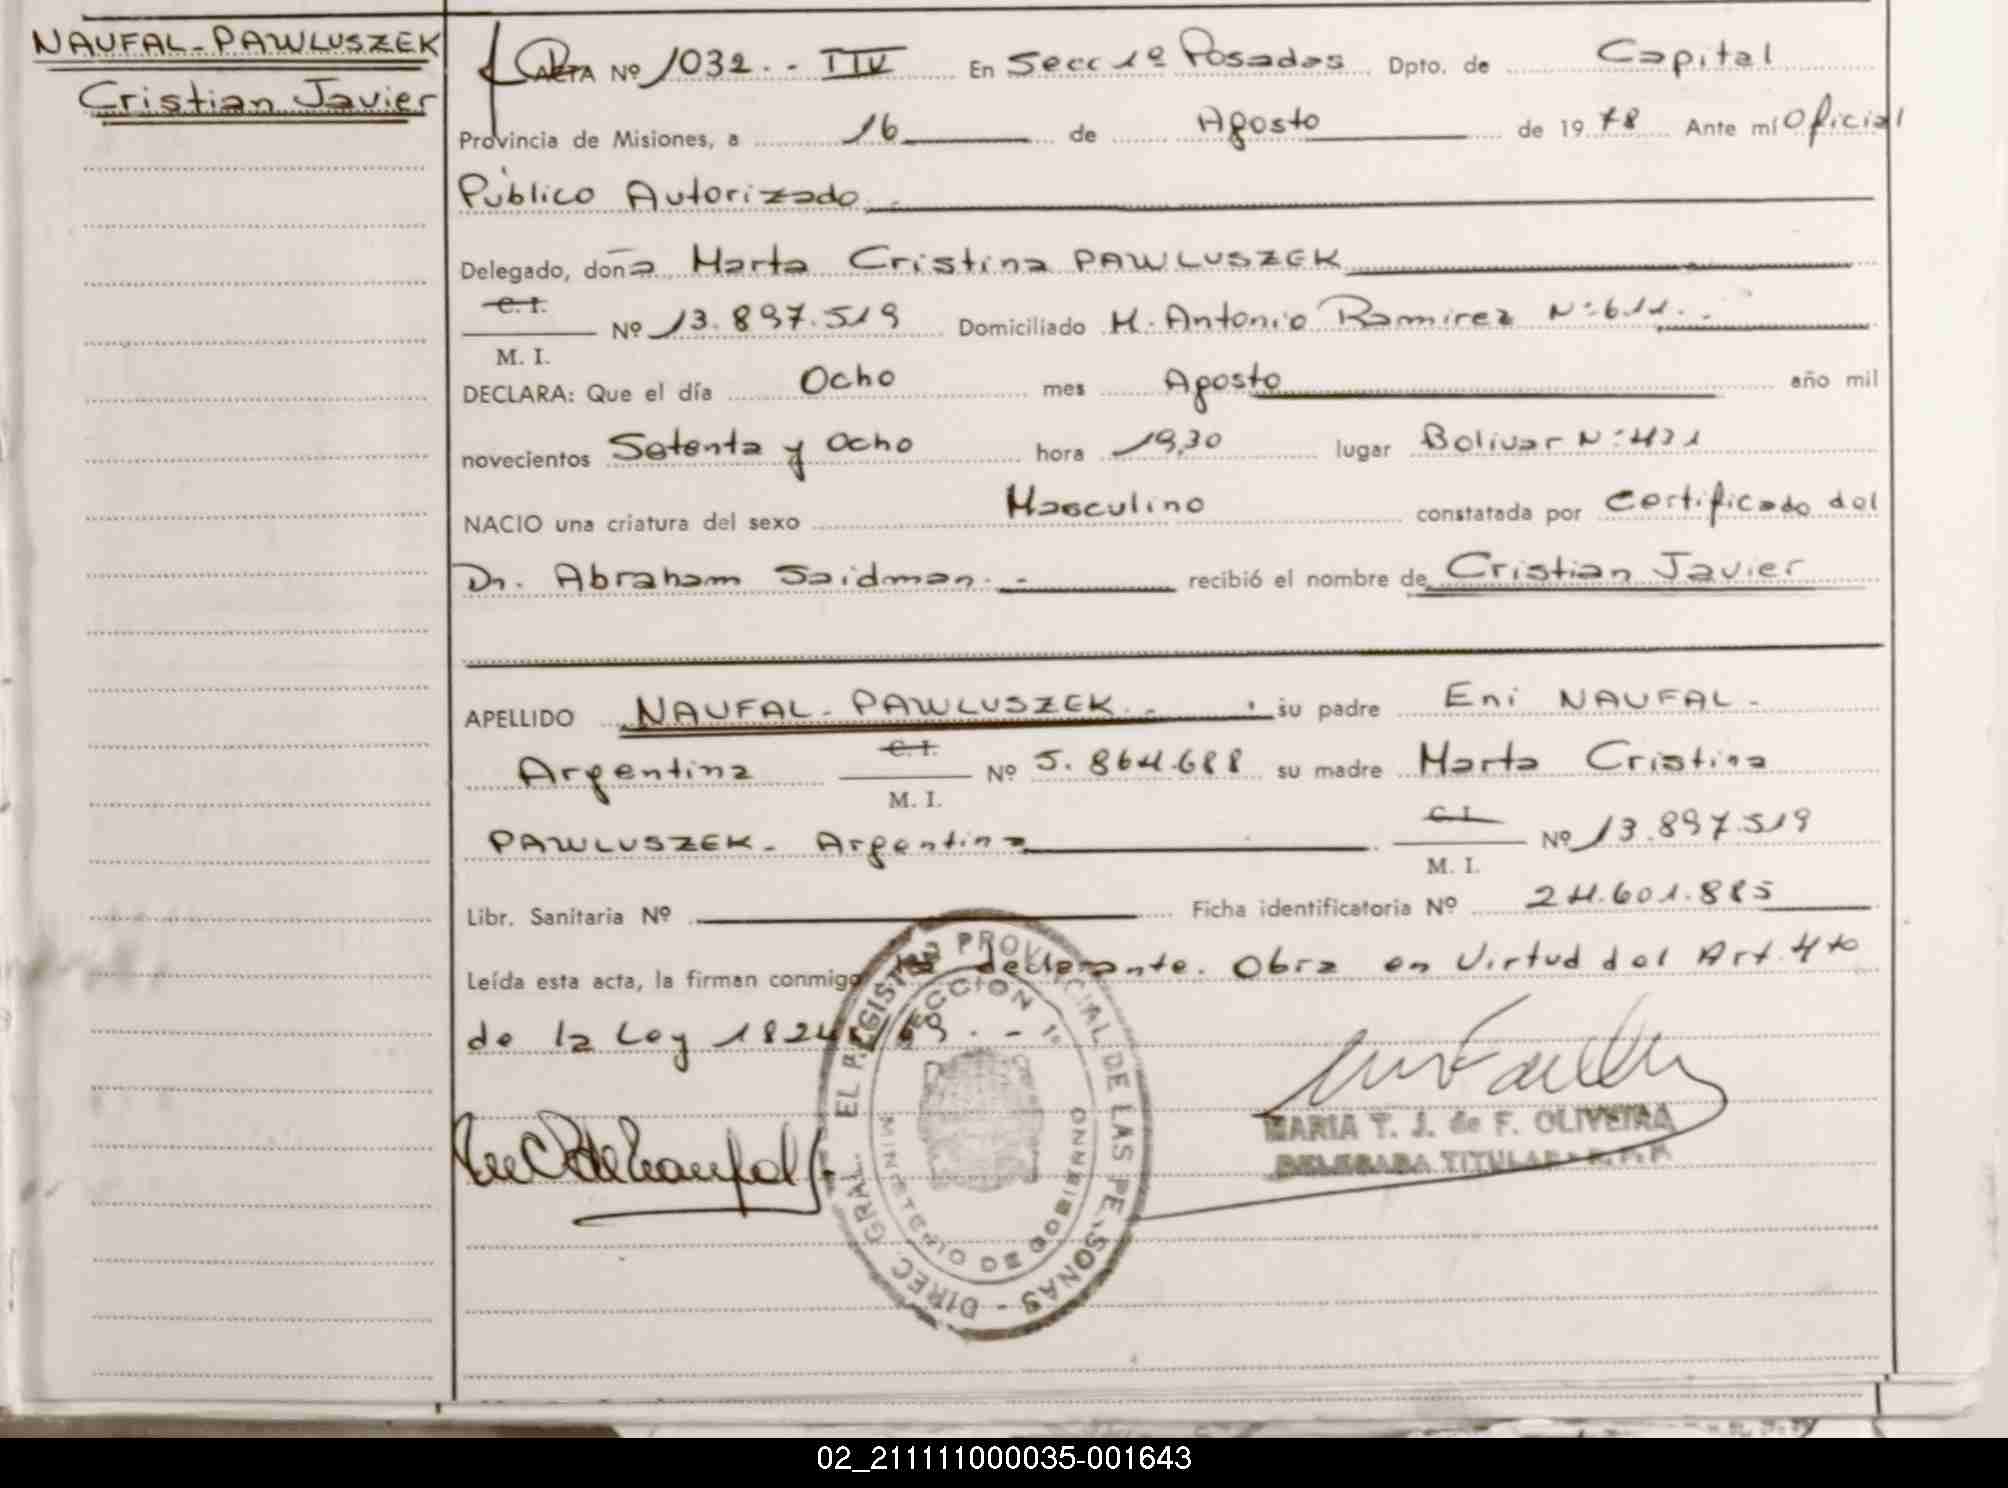 NAUFAL-PAWLUSZEK
Cristian Javier
ACTA Nº 1032.- T IV En Secc 1º Posadas Dpto. de Capital
Provincia de Misiones, a 16 de Agosto de 1978 Ante mí Oficial
Público Autorizado.-
Delegado, doña Marta Cristina PAWLUSZEK
C. I.
Nº 13.897.519 Domiciliado M. Antonio Ramirez Nº 611.-
M. I.
DECLARA: Que el día Ocho mes Agosto año mil
novecientos Setenta y Ocho hora 19,30 lugar Bolivar Nº 421
NACIO una criatura del sexo Masculino constatada por Certificado del
Dr. Abraham Saidman.- recibió el nombre de Cristian Javier
APELLIDO NAUFAL-PAWLUSZEK.- su padre Eni NAUFAL-
C. I.
Argentina Nº 5.864.688 su madre Marta Cristina
M. I.
C. I.
PAWLUSZEK- Argentina Nº 13.897.519
M. I.
Libr. Sanitaria Nº Ficha identificatoria Nº 24.601.885
Leída esta acta, la firman conmigo la declarante. Obra en Virtud del Art. 4to
de la Ley 18248/69.-
DIREC. GRAL. EL REGISTRO PROVINCIAL DE LAS PERSONAS -
SECCION 1º
MINISTERIO DE GOBIERNO
MARIA T. J. de F. OLIVEIRA
DELEGADA TITULAR - R.P.P.
02_211111000035-001643